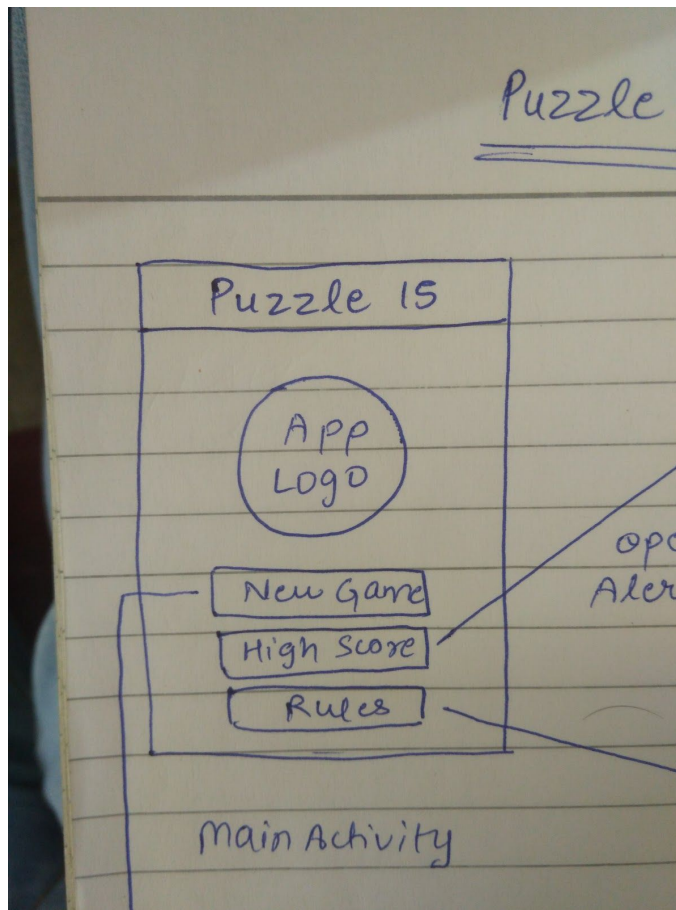 Puzzle
Puzzle 15
App
Logo
New Game
High Score
Rules
Main Activity